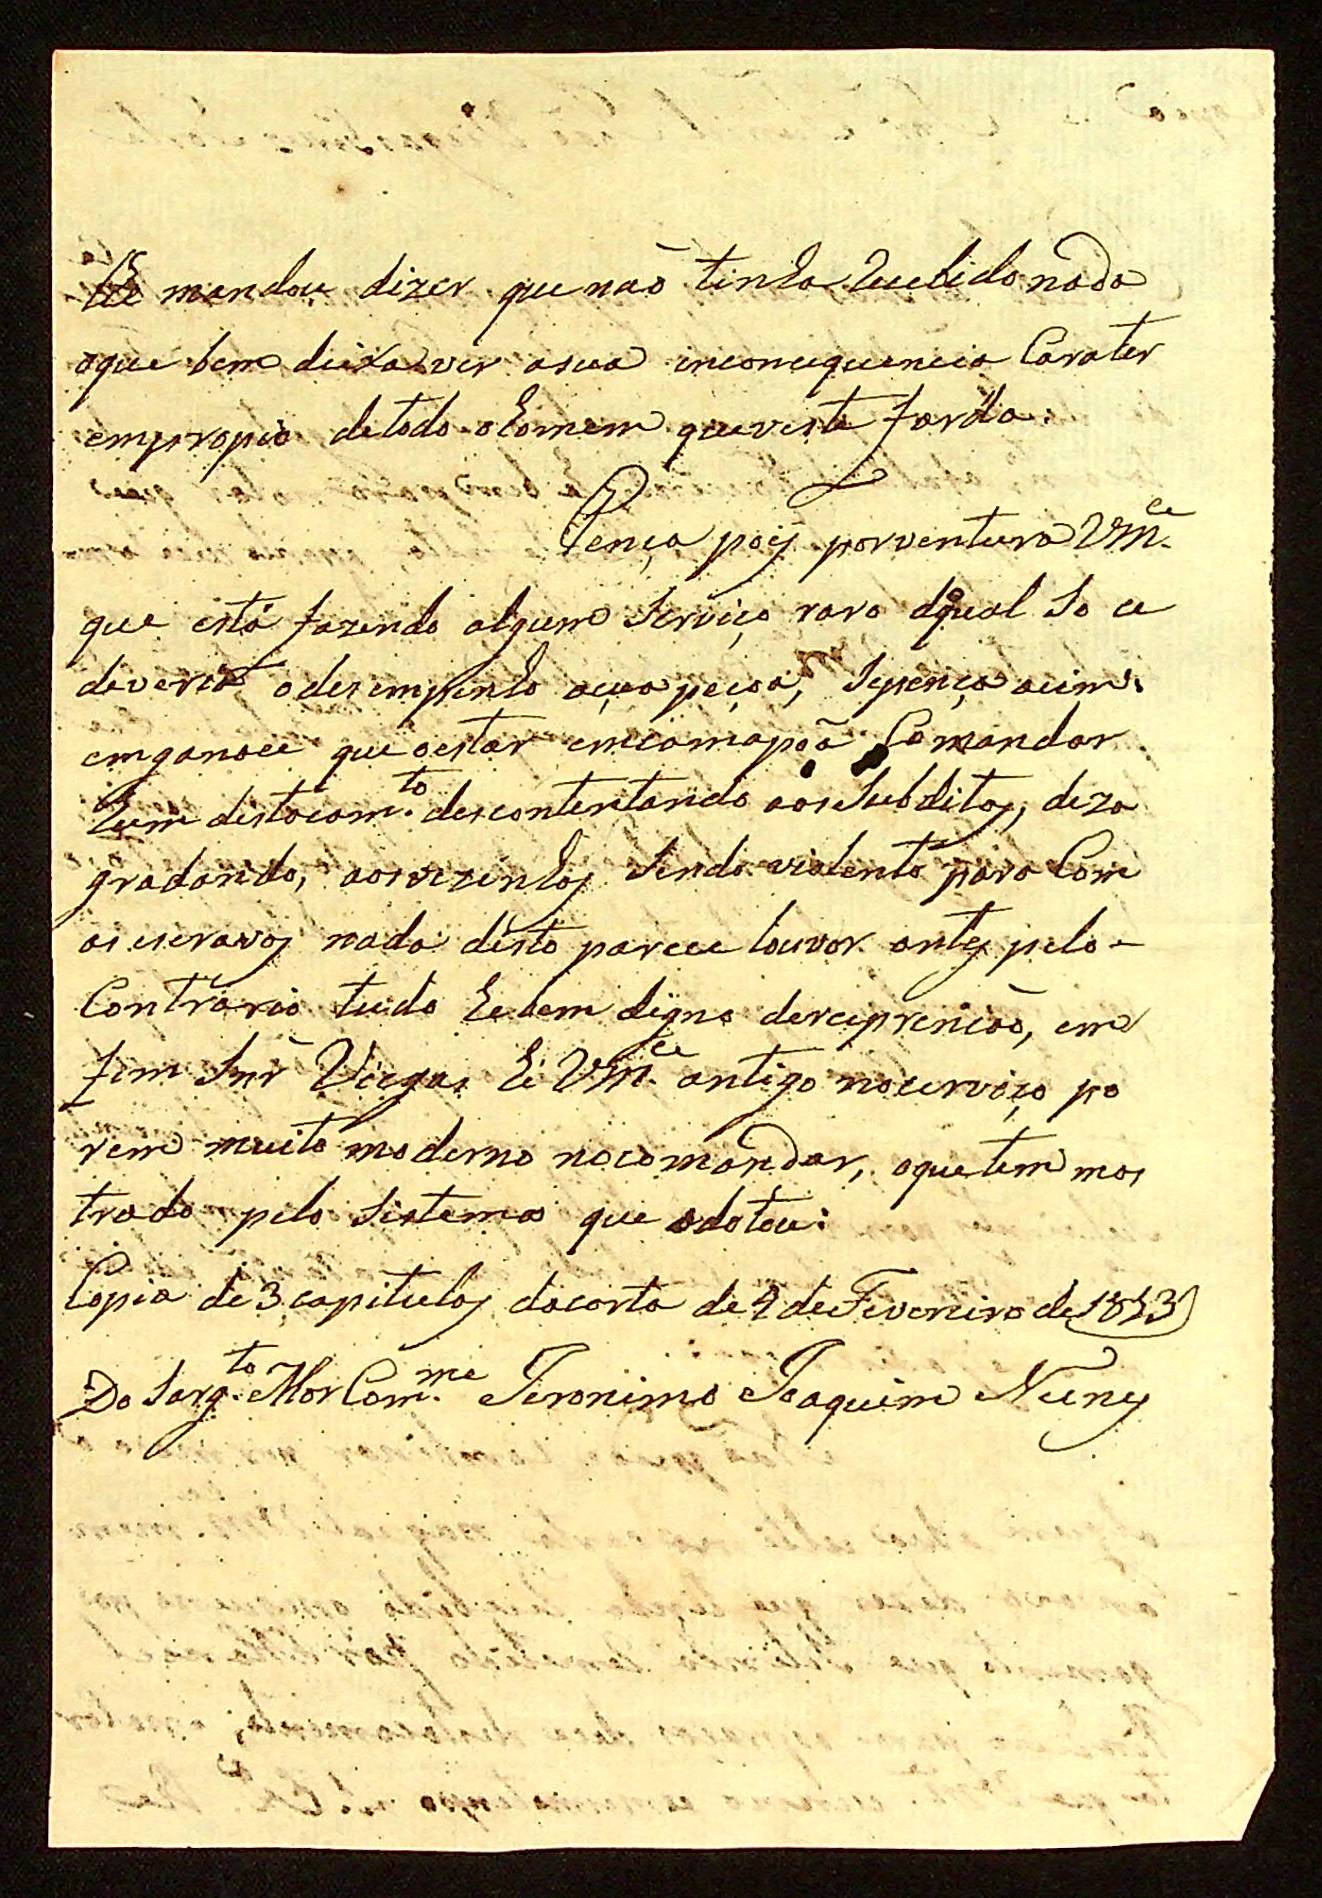 mandou dizer que naõ tinha Recebido nada
oque bem deixa ver asua inconcequencia Carater
empropio detodo ohomem queveste farda.
Pença pois porventura Vm.ce
que está fazendo algum Serviço raro doqual So ce
deveria odezempenho açuapeçoa, Sepença acim
emganoce que oestar emcomapçã Comandar
hum distacam.to descontentando aos Subditos, deza
gradando, aosvezinhos Sendo violento para Com
os escravos nada disto parece louvor antes pelo
Contrario tudo hebem digno derepriençaõ, em
fim Snr̃ Viegas hé Vm.ce antigo nocerviço po
rem muito moderno nocomandar, oquetem mos
trado pelo Sistema que adotou:
Copia de 3 capitulos dacarta de 2 deFevereiro de 1823
Do Sarg.to Mor Com.me Jeronimo Joaquim Nunes